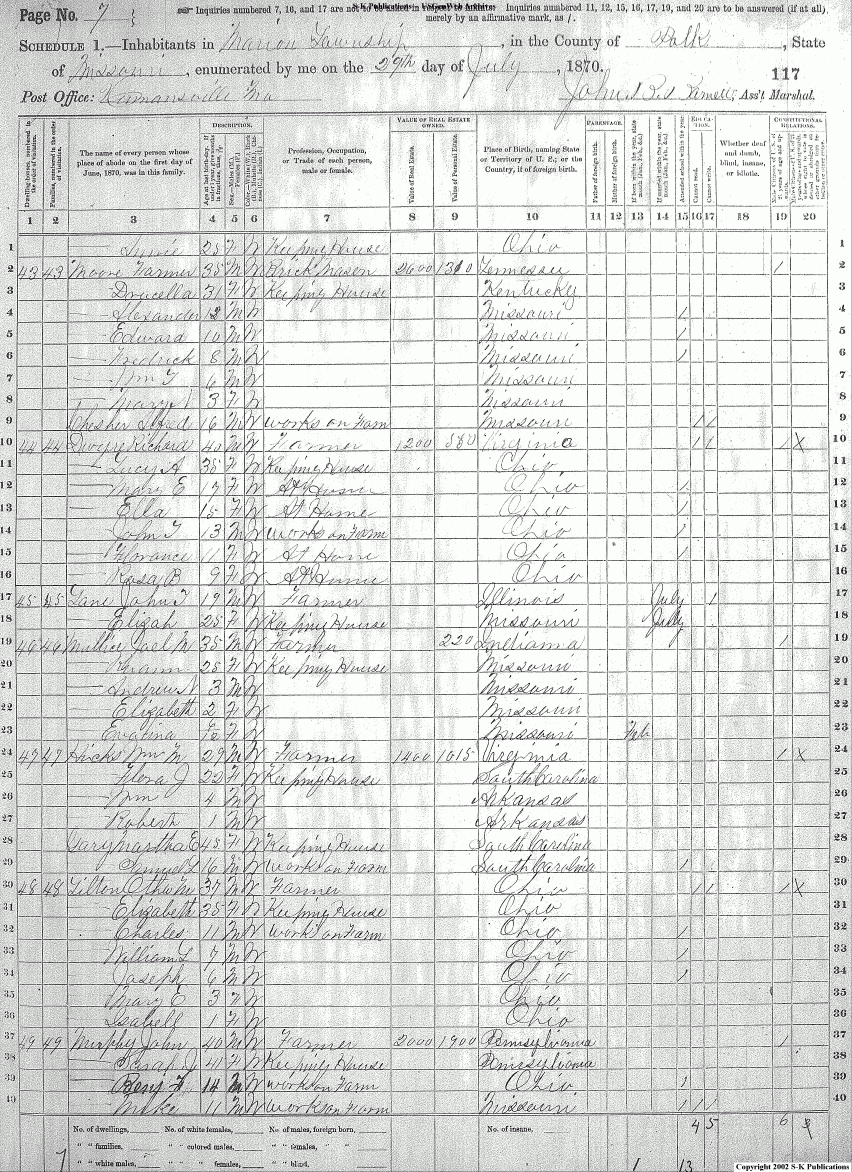 Page No. 7
Inquiries numbered 7, 16, and 17 are not to be asked in respect to infants. Inquiries numbered 11, 12, 15, 16, 17, 19, and 20 are to be answered (if at all),
merely by an affirmative mark, as /.
S-K Publications: USGenWeb Archives
SCHEDULE 1.—Inhabitants in Marion Township, in the County of Polk, State
of Missouri, enumerated by me on the 29th day of July, 1870. 117
Post Office: Humansville Mo John, Ass't Marshal.
DESCRIPTION. VALUE OF REAL ESTATE OWNED. PARENTAGE. EDUCATION. CONSTITUTIONAL RELATIONS.
Dwelling-houses, numbered in the order of visitation. Families, numbered in the order of visitation. The name of every person whose place of abode on the first day of June, 1870, was in this family. Profession, Occupation, or Trade of each person, male or female. Value of Real Estate. Value of Personal Estate. Place of Birth, naming State or Territory of U. S.; or the Country, if of foreign birth. Father of foreign birth. Mother of foreign birth. Attended school within the year. Cannot read. Cannot write. Whether deaf and dumb, blind, insane, or idiotic.
1 2 3 4 5 6 7 8 9 10 11 12 13 14 15 16 17 18 19 20
1 25 F W Keeping House Ohio 1
2 43 43 Moore Farmer 35 M W Brick Mason 2600 1310 Tennessee / 2
3 — Drucella 31 F W Keeping House Kentucky 3
4 — Alexander 12 M W Missouri / 4
5 — Edward 10 M W Missouri / 5
6 — Fredrick 8 M W Missouri / 6
7 — Wm T 6 M W Missouri 7
8 — Mary 3 F W Missouri 8
9 Chesher 16 M W works on Farm Missouri / / 9
10 44 44 Richard 40 M W Farmer 1200 580 Virginia / / / X 10
11 — Lucy A 38 F W Keeping House Ohio 11
12 — Mary E 17 F W At Home Ohio / 12
13 — Ella 15 F W At Home Ohio / 13
14 — John T 13 M W works on Farm Ohio / 14
15 — Florance 11 F W At Home Ohio / 15
16 — Rosa B 9 F W At Home Ohio 16
17 45 45 Lane John T 19 M W Farmer Illinois July / 17
18 — Elizah 25 F W Keeping House Missouri July 18
19 46 46 Joel M 35 M W Farmer 220 Indiana / 19
20 — 25 F W Keeping House Missouri 20
21 — Andrew N 3 M W Missouri 21
22 — Elizabeth 2 F W Missouri 22
23 — Evalina F W Missouri Feb 23
24 47 47 Hicks Wm M 29 M W Farmer 1400 1015 Virginia / X 24
25 — Flora J 22 F W Keeping House South Carolina 25
26 — Wm 4 M W Arkansas 26
27 — Robert 1 M W Arkansas 27
28 Gary Martha E 45 F W Keeping House South Carolina 28
29 — Samuel L 16 M W Work on Farm South Carolina / 29
30 48 48 Tilton Otho M 37 M W Farmer Ohio / / / X 30
31 — Elizabeth 35 F W Keeping House Ohio 31
32 — Charles 11 M W works on Farm Ohio / 32
33 — William L 7 M W Ohio / 33
34 — Joseph 6 M W Ohio / 34
35 — Mary E 3 F W Ohio 35
36 — Isabell 1 F W Ohio 36
37 49 49 Murphy John 40 M W Farmer 2000 1900 Pennsylvania / 37
38 — Sarah J 41 F W Keeping House Pennsylvania 38
39 — Benj F. 14 M W works on Farm Ohio / 39
40 — Mike 11 M W works on Farm Missouri / / / 40
No. of dwellings, No. of white females, No. of males, foreign born, No. of insane, 4 5 6
" " families, " " colored males, " " females,
7 " " white males, " " females, " " blind, 1 13
Copyright 2002 S-K Publications